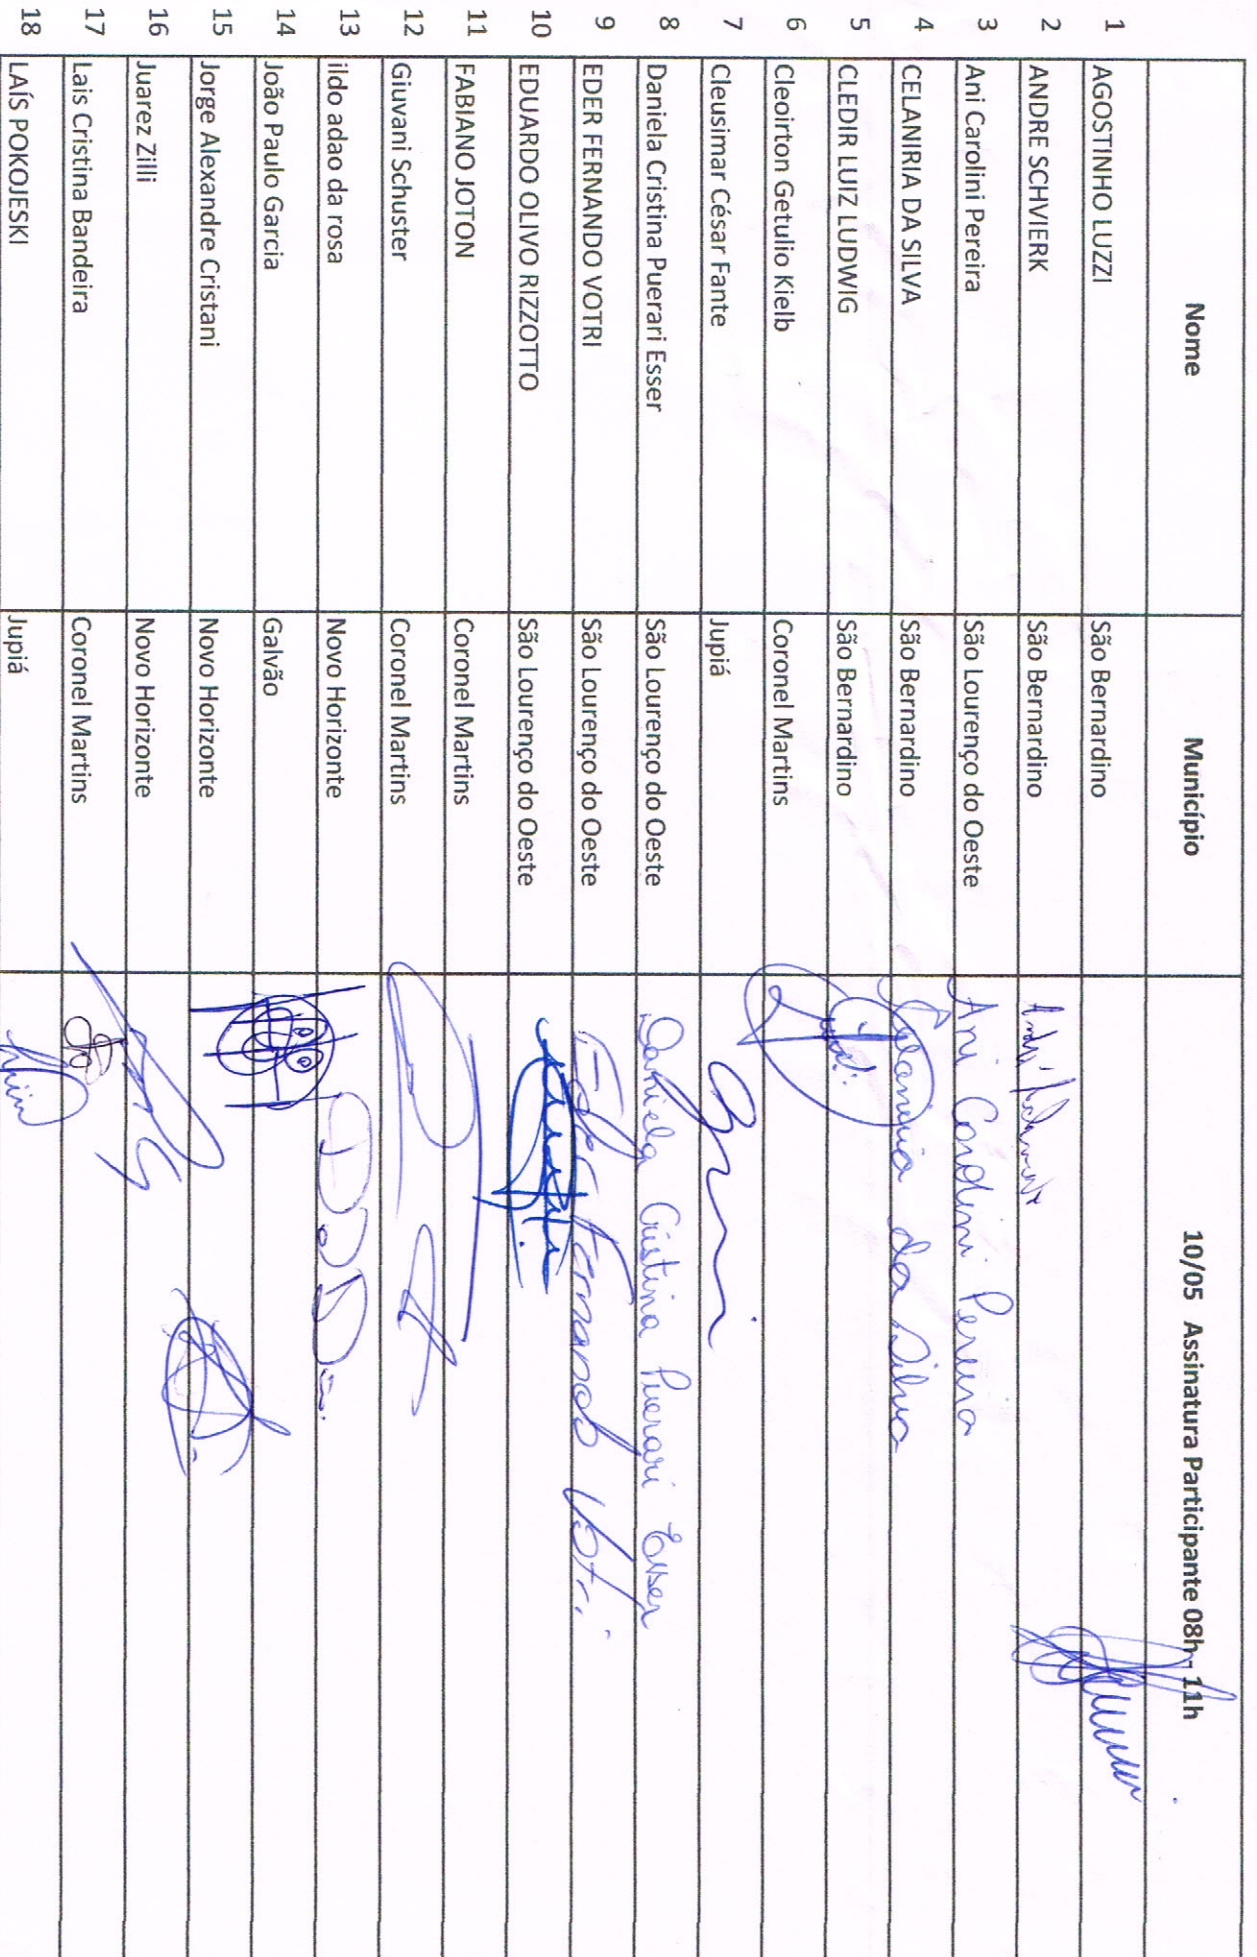 Nome Município 10/05 Assinatura Participante 08h- 11h
1 AGOSTINHO LUZZI São Bernardino
2 ANDRE SCHVIERK São Bernardino
3 Ani Carolini Pereira São Lourenço do Oeste Ani Carolini Pereira
4 CELANIRIA DA SILVA São Bernardino Celaniria da Silva
5 CLEDIR LUIZ LUDWIG São Bernardino
6 Cleoirton Getulio Kielb Coronel Martins
7 Cleusimar César Fante Jupiá
8 Daniela Cristina Puerari Esser São Lourenço do Oeste Daniela Cristina Puerari Esser
9 EDER FERNANDO VOTRI São Lourenço do Oeste Eder Fernando Votri
10 EDUARDO OLIVO RIZZOTTO São Lourenço do Oeste
11 FABIANO JOTON Coronel Martins
12 Giuvani Schuster Coronel Martins
13 ildo adao da rosa Novo Horizonte
14 João Paulo Garcia Galvão
15 Jorge Alexandre Cristani Novo Horizonte
16 Juarez Zilli Novo Horizonte
17 Lais Cristina Bandeira Coronel Martins
18 LAÍS POKOJESKI Jupiá